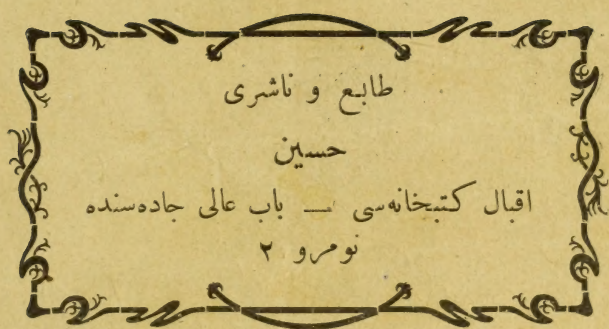 طابع و ناشری
حسین
اقبال كتبخانه‌سی — باب عالی جاده‌سنده
نومرو ۲